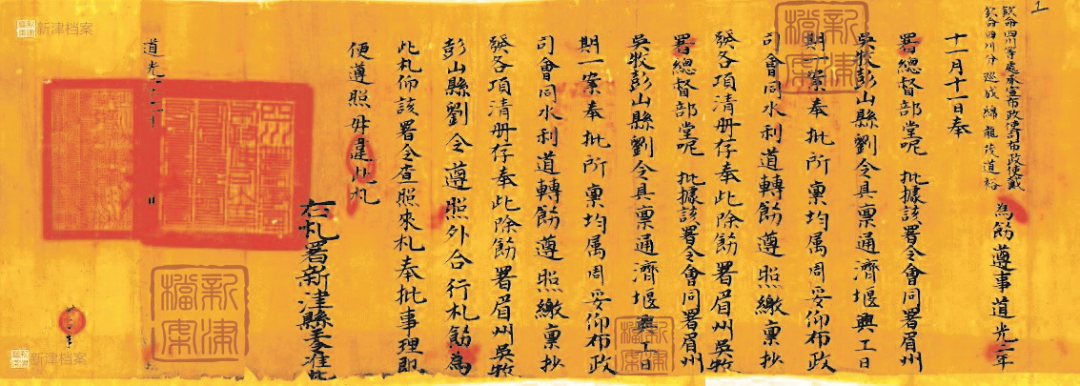 欽命四川等處承宣布政使司布政使戴
欽命四川分巡成綿龍茂道裕
為飭遵事道光二年
十一月十一日奉
署總督部堂呢 批據該署令會同署眉州
吳牧彭山縣劉令具稟通濟堰興工日
期一案奉批所稟均屬周妥仰布政
司會同水利道轉飭遵照繳稟抄
發各項清册存奉此除飭署眉州吳牧
署總督部堂呢 批據該署令會同署眉州
吳牧彭山縣劉令具稟通濟堰興工日
期一案奉批所稟均屬周妥仰布政
司會同水利道轉飭遵照繳稟抄
發各項清册存奉此除飭署眉州吳牧
彭山縣劉令遵照外合行札飭為
此札仰該署令查照來札奉批事理即
便遵照毋違此札
右札署新津縣准此
道光二
新津檔案
新津檔案
新津檔案
新津档案
新津档案